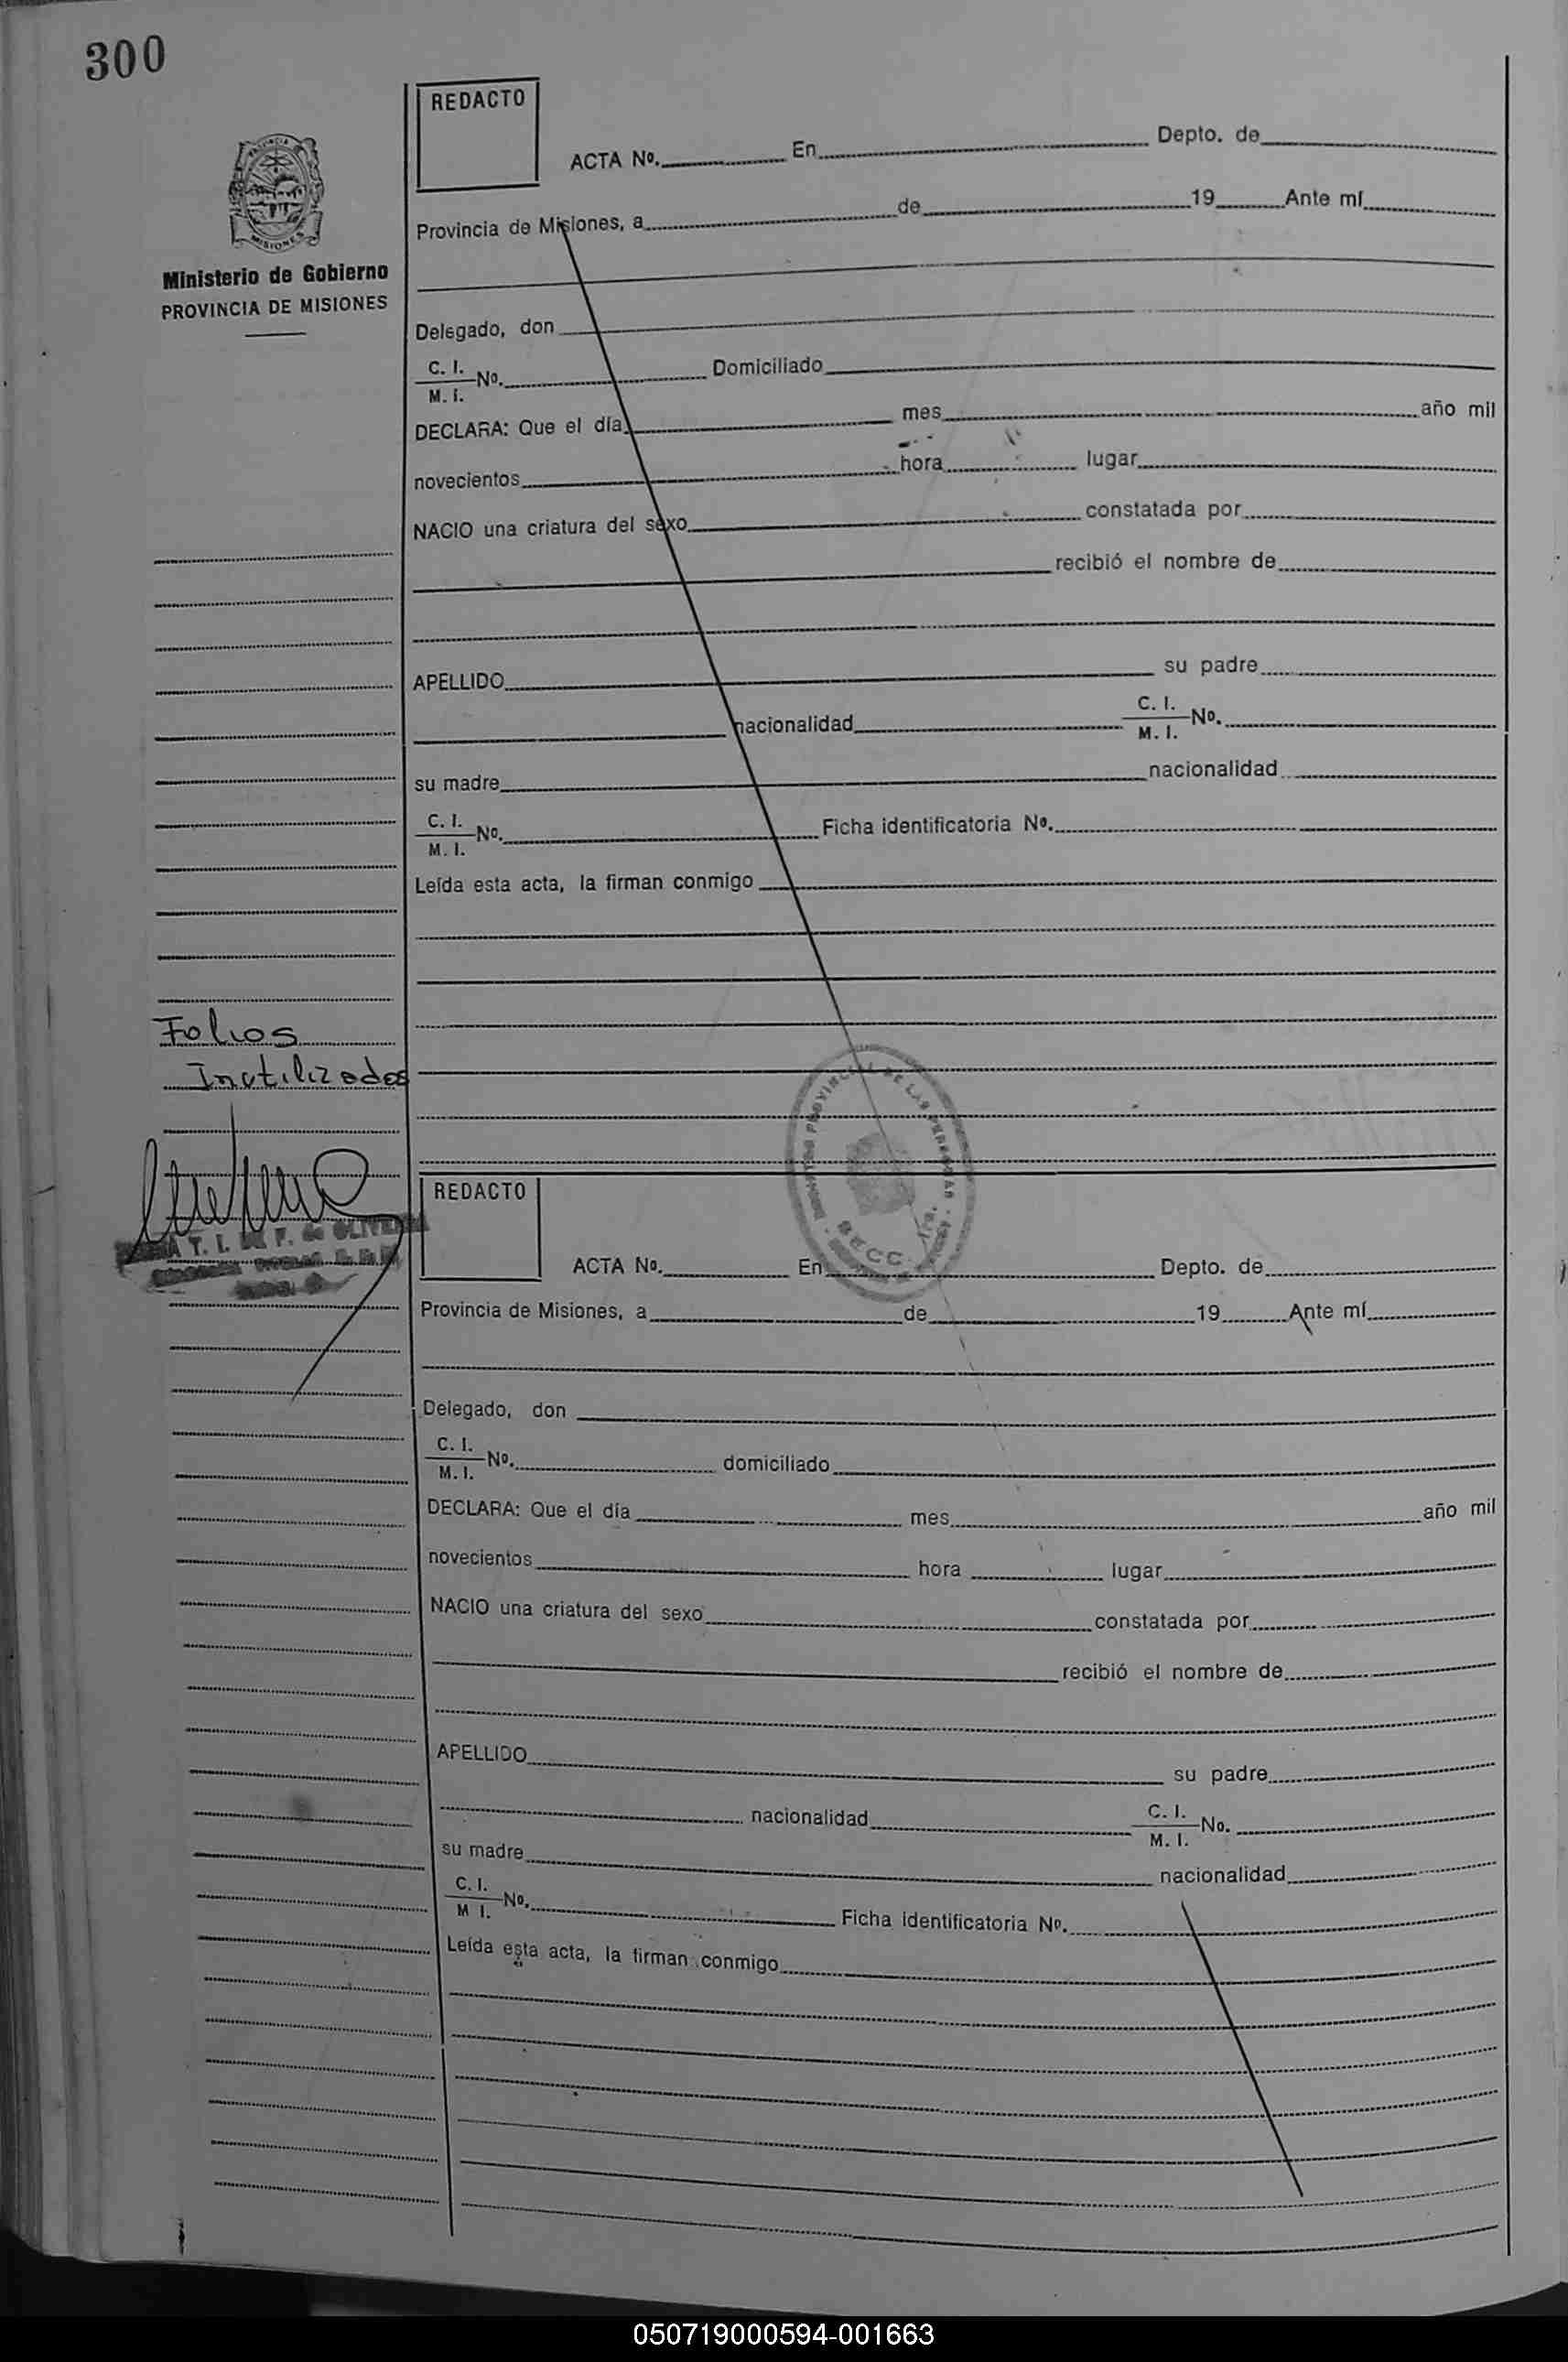 300
REDACTO
ACTA Nº. En Depto. de
Provincia de Misiones, a de 19 Ante mí
MISIONES
Ministerio de Gobierno
PROVINCIA DE MISIONES
Delegado, don
C. I.
M. I. Nº. Domiciliado
DECLARA: Que el día mes año mil
novecientos hora lugar
NACIO una criatura del sexo constatada por
recibió el nombre de
APELLIDO su padre
nacionalidad C. I.
M. I. Nº.
su madre nacionalidad
C. I.
M. I. Nº. Ficha identificatoria Nº.
Leída esta acta, la firman conmigo
Folios
Inutilizados
PROVINCIAL DE LAS PERSONAS
SECC.
T. I. F. de OLIVEIRA
REDACTO
ACTA Nº. En Depto. de
Provincia de Misiones, a de 19 Ante mí
Delegado, don
C. I.
M. I. Nº. domiciliado
DECLARA: Que el día mes año mil
novecientos hora lugar
NACIO una criatura del sexo constatada por
recibió el nombre de
APELLIDO su padre
nacionalidad C. I.
M. I. No.
su madre nacionalidad
C. I.
M I. Nº. Ficha identificatoria Nº.
Leída esta acta, la firman conmigo
050719000594-001663